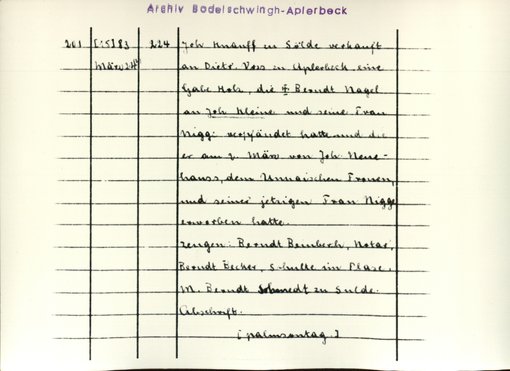 Archiv Bodelschwingh-Aplerbeck
201 [15]83 224 Joh Knauff zu Sölde verkauft
März 24 an Dietr. Voss zu Aplerbeck eine
Gabe Holz, die Berndt Nagel
an Joh Kleine und seine Frau
Nigg: verpfändet hatte und die
er am 2. März von Joh Neue-
hauss, dem Unnaischen Fronen,
und seiner jetzigen Frau Nigge
erworben hatte.
Zeugen: Berndt Bemberh, Notar,
Berndt Becker, Schulte im
M. Berndt Schmedt zu Sulde.
Abschrift.
[Palmsontag]